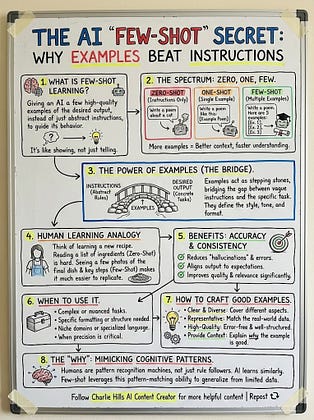 THE AI "FEW-SHOT" SECRET:
WHY EXAMPLES BEAT INSTRUCTIONS
1. WHAT IS FEW-SHOT
LEARNING?
Giving an AI a few high-quality
examples of the desired output,
instead of just abstract instructions,
to guide its behavior.
It's like showing, not just telling.
2. THE SPECTRUM: ZERO, ONE, FEW.
ZERO-SHOT
(Instructions Only)
Write a poem
about a cat.
ONE-SHOT
(Single Example)
Write a poem
like this:
[Example Poem]
FEW-SHOT
(Multiple Examples)
Write a poem.
Here are 3
examples:
More examples = Better context, faster understanding.
3. THE POWER OF EXAMPLES (THE BRIDGE).
INSTRUCTIONS
(Abstract
Rules)
DESIRED
OUTPUT
(Concrete
Tasks)
EXAMPLES
Examples act as stepping stones,
bridging the gap between vague
instructions and the specific task.
They define the style, tone, and
format.
4. HUMAN LEARNING ANALOGY
Think of learning a new recipe.
Reading a list of ingredients (Zero-Shot)
is hard. Seeing a few photos of the
final dish & key steps (Few-Shot) makes
it much easier to replicate.
5. BENEFITS: ACCURACY
& CONSISTENCY
Reduces "hallucinations" & errors.
Aligns output to expectations.
Improves quality & relevance significantly.
6. WHEN TO USE IT.
• Complex or nuanced tasks.
• Specific formatting or structure needed.
• Niche domains or specialized language.
• When precision is critical.
7. HOW TO CRAFT GOOD EXAMPLES.
Clear & Diverse: Cover different aspects.
Representative: Match the real-world data.
High-Quality: Error-free & well-structured.
Provide Context: Explain why the example
is good.
8. THE "WHY": MIMICKING COGNITIVE PATTERNS.
Humans are pattern recognition machines, not just rule followers. AI learns similarly.
Few-shot leverages this pattern-matching ability to generalize from limited data.
Follow Charlie Hills AI Content Creator for more helpful content | Repost